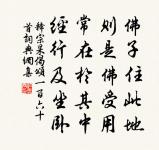 佛子住此地
則是佛受用
常在於其中
經行及坐臥
釋宗杲偈頌一百六十
首詞典網集